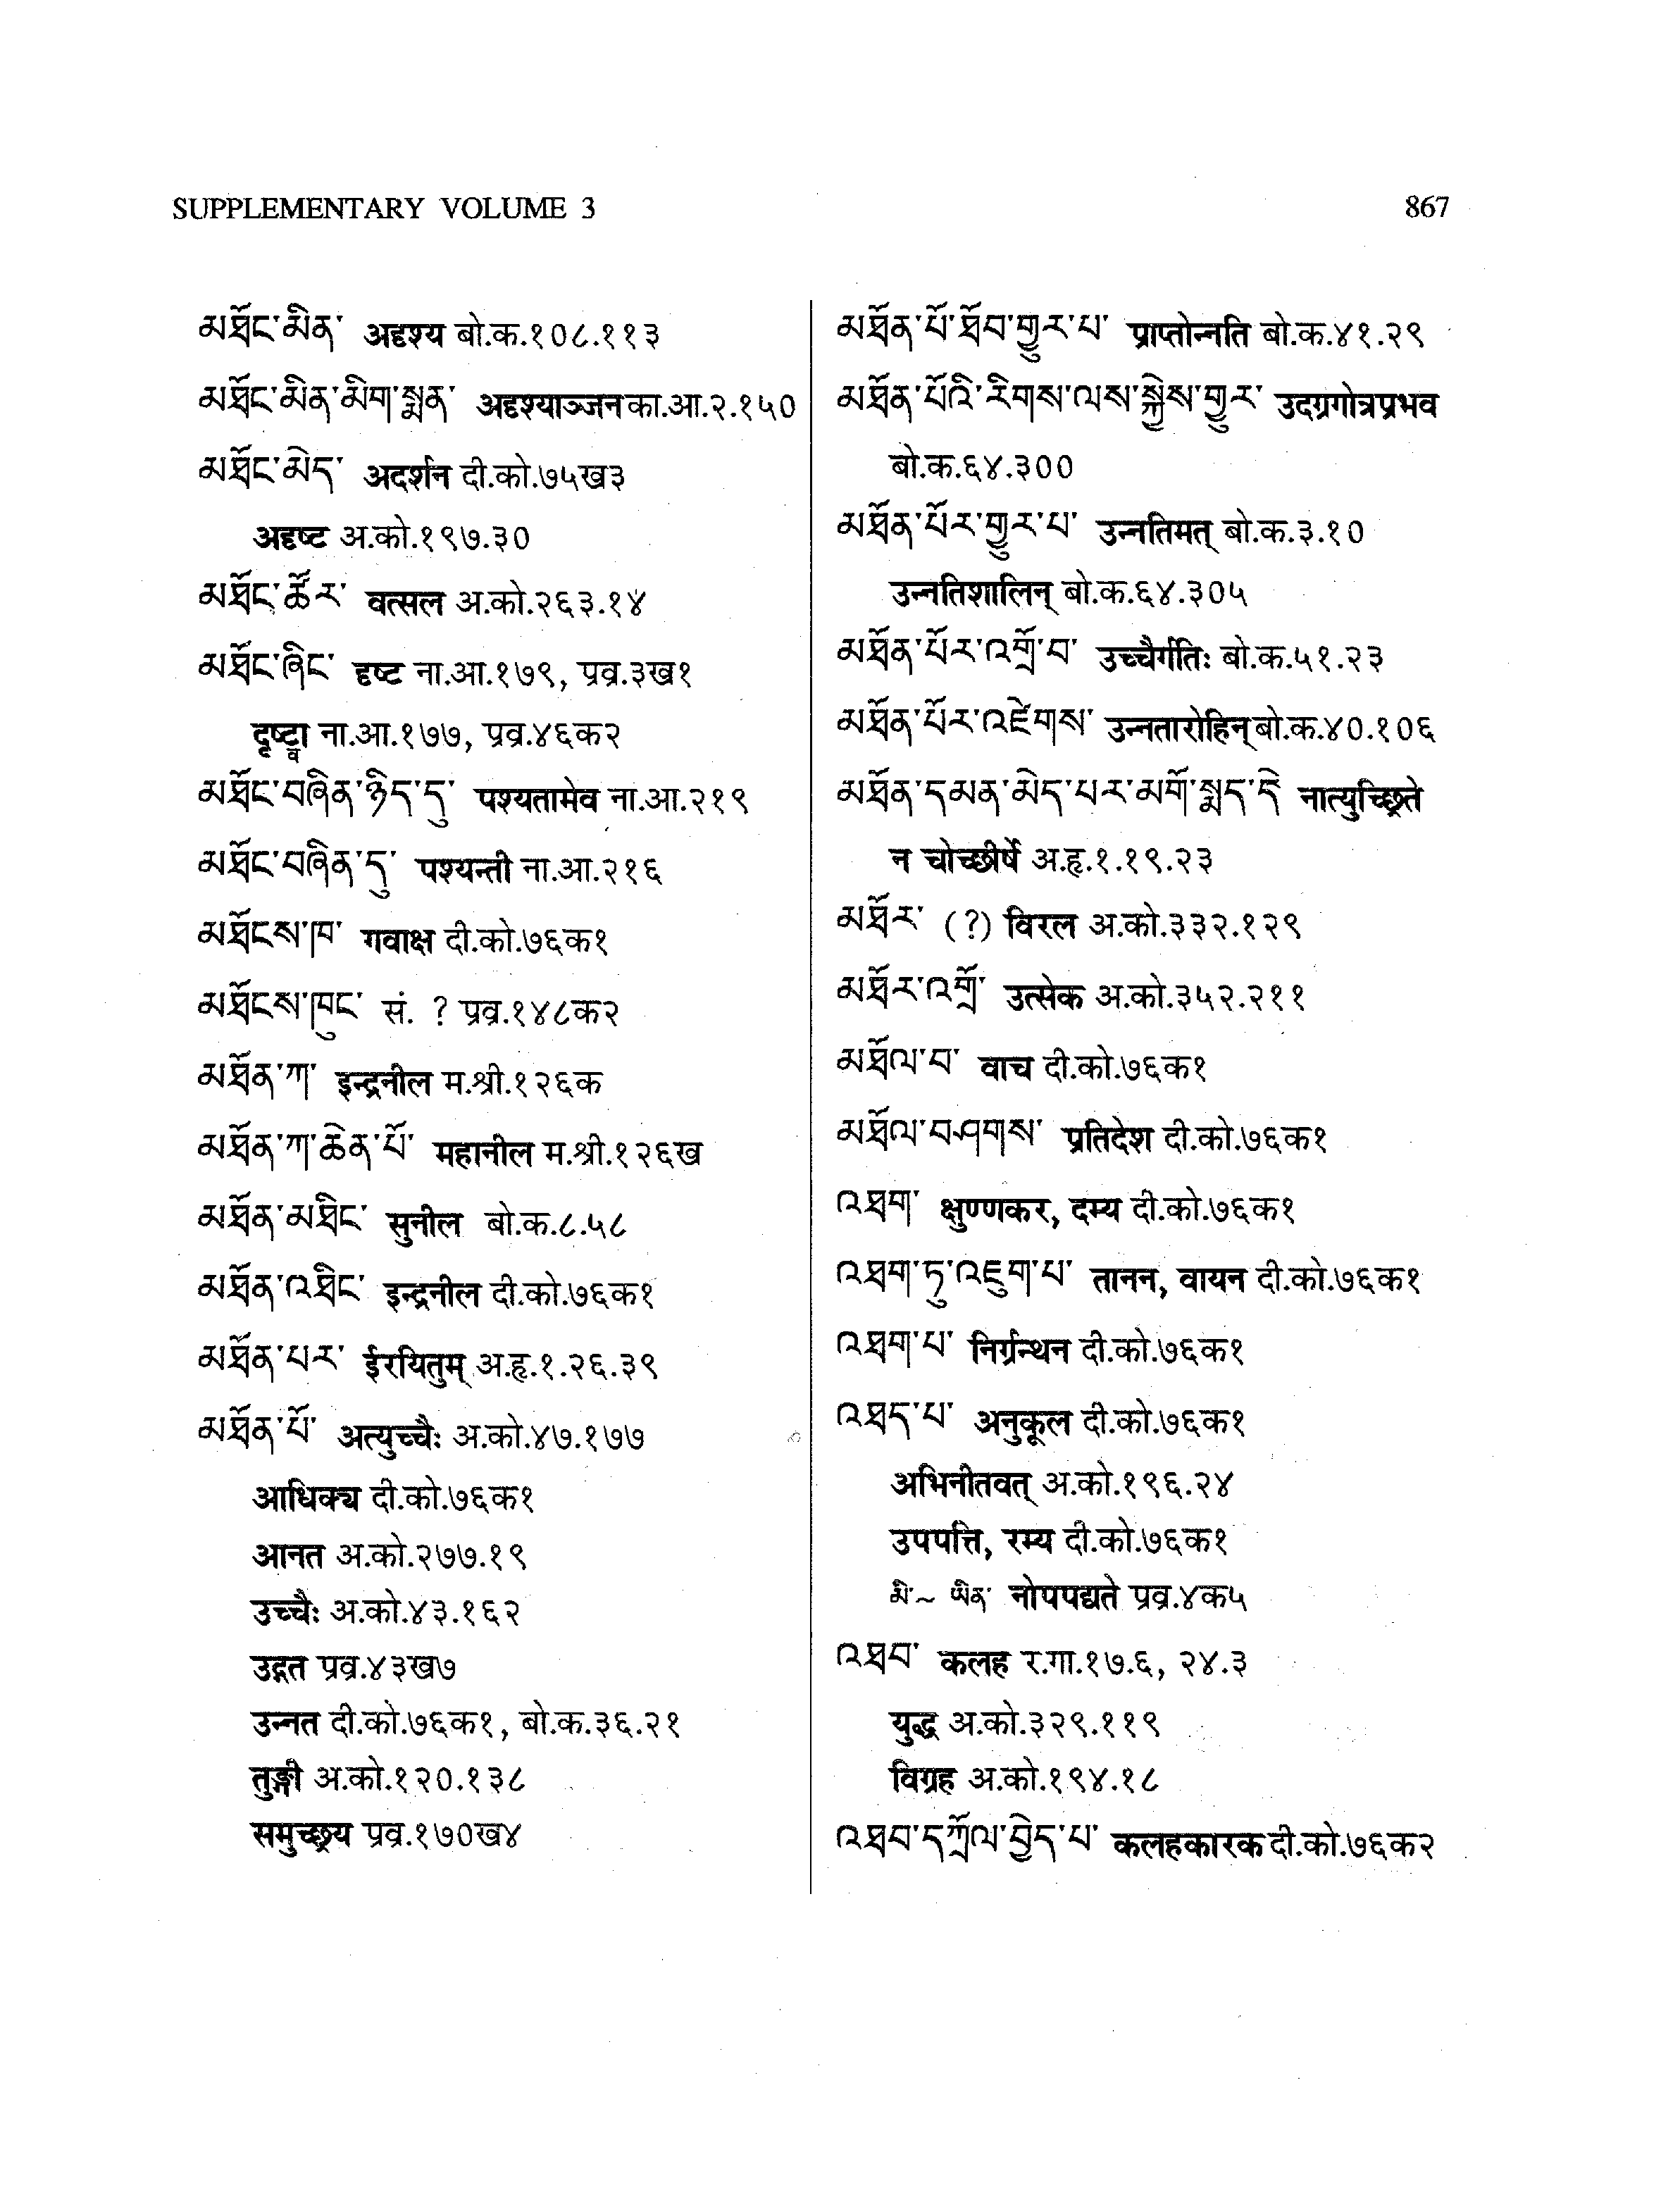 SUPPLEMENTARY VOLUME 3
867
མཐོང་མིན་ अदृश्य बो.क.१०८.११३
མཐོང་མིན་མིག་སྨན་ अदृश्याञ्जन का.आ.२.१५०
མཐོང་མེད་ अदर्शन दी.को.७५ख३
अदृष्ट अ.को.१९७.३०
མཐོང་ཚོར་ वत्सल अ.को.२६३.१४
མཐོང་ཞིང་ दृष्ट ना.आ.१७९, प्रव्र.३ख१
दृष्ट्वा ना.आ.१७७, प्रव्र.४६क२
མཐོང་བཞིན་ཉིད་དུ་ पश्यतामेव ना.आ.२१९
མཐོང་བཞིན་དུ་ पश्यन्ती ना.आ.२१६
མཐོངས་ཁ་ गवाक्ष दी.को.७६क१
མཐོངས་ཁུང་ सं. ? प्रव्र.१४८क२
མཐོན་ཀ་ इन्द्रनील म.श्री.१२६क
མཐོན་ཀ་ཆེན་པོ་ महानील म.श्री.१२६ख
མཐོན་མཐིང་ सुनील बो.क.८.५८
མཐོན་འཐིང་ इन्द्रनील दी.को.७६क१
མཐོན་པར་ ईरयितुम् अ.हृ.१.२६.३९
མཐོན་པོ་ अत्युच्चैः अ.को.४७.१७७
आधिक्य दी.को.७६क१
आनत अ.को.२७७.१९
उच्चैः अ.को.४३.१६२
उद्गत प्रव्र.४३ख७
उन्नत दी.को.७६क१, बो.क.३६.२१
तुङ्गी अ.को.१२०.१३८
समुच्छ्रय प्रव्र.१७०ख४
མཐོན་པོ་ཐོབ་གྱུར་པ་ प्राप्तोन्नति बो.क.४१.२९
མཐོན་པོའི་རིགས་ལས་སྐྱེས་གྱུར་ उदग्रगोत्रप्रभव
बो.क.६४.३००
མཐོན་པོར་གྱུར་པ་ उन्नतिमत् बो.क.३.१०
उन्नतिशालिन् बो.क.६४.३०५
མཐོན་པོར་འགྲོ་བ་ उच्चैर्गतिः बो.क.५१.२३
མཐོན་པོར་འཛེགས་ उन्नतारोहिन् बो.क.४०.१०६
མཐོན་དམན་མེད་པར་མགོ་སྨད་དེ་ नात्युच्छ्रिते
न चोच्छीर्षे अ.हृ.१.१९.२३
མཐོར་ (?) विरल अ.को.३३२.१२९
མཐོར་འགྲོ་ उत्सेक अ.को.३५२.२११
མཐོལ་བ་ वाच दी.को.७६क१
མཐོལ་བ་ཤགས་ प्रतिदेश दी.को.७६क१
འཐག་ क्षुण्णकर, दम्य दी.को.७६क१
འཐག་ཏུ་འཇུག་པ་ तानन, वायन दी.को.७६क१
འཐག་པ་ निर्ग्रन्थन दी.को.७६क१
འཐད་པ་ अनुकूल दी.को.७६क१
अभिनीतवत् अ.को.१९६.२४
उपपत्ति, रम्य दी.को.७६क१
མི་~ ཡིན་ नोपपद्यते प्रव्र.४क५
འཐབ་ कलह र.गा.१७.६, २४.३
युद्ध अ.को.३२९.११९
विग्रह अ.को.१९४.१८
འཐབ་དཀྲོལ་བྱེད་པ་ कलहकारक दी.को.७६क२